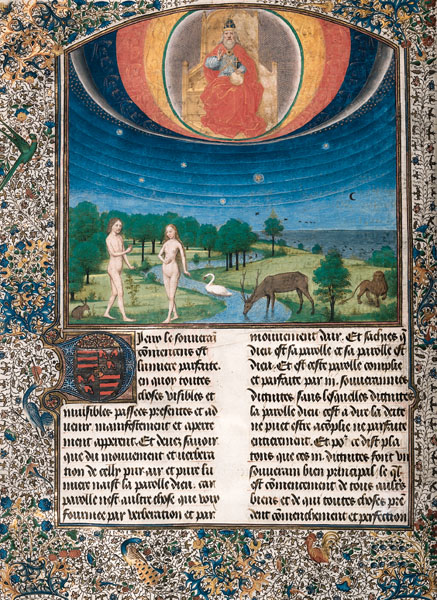 Dieu le souuerain
comencement est
lumier parfaite
en quoy toutes
choses visibles et
inuisibles passees presentes et ad
uenir manifestement et aperte
ment apperent. Et deuez sauoir
que du mouuement et verbera
tion de celly pur air et pure lu
miere naist la parolle dieu. car
parolle nest aultre chose que voix
fourmee par verberation et par
mouuement dair. Et sachies q̃
dieu est sa parolle et sa parolle est
dieu. Et est ceste parolle complie
et parfaite par souueraines
dignites sans lesquelles dignites
la parolle dieu cest a dire la deite
ne puet estre acoplie ne parfaite
entierement. Et po^r ce dist pla
tons que ces dignites font vn
souuerain bien principal. le q̃l
est comencement de tous aultrs
biens et de qui toutes choses prẽ
dent comenchement et perfection